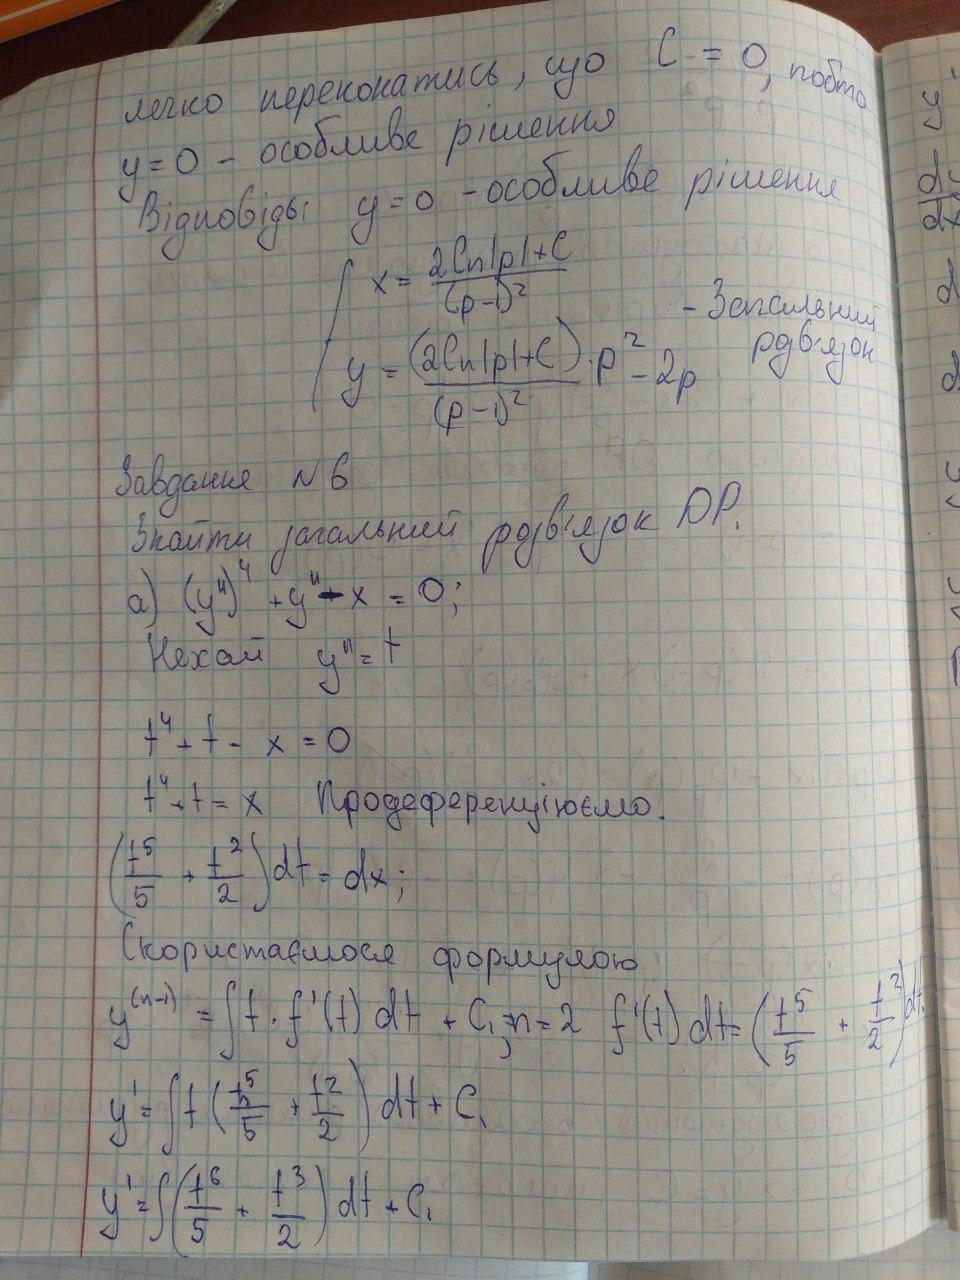 легко переконатись, що C = 0, тобто
y = 0 - особливе рішення
Відповідь: y = 0 - особливе рішення
x = (2ln|p|+C)/(p-1)²
y = (2ln|p|+C)/(p-1)² · p² - 2p - Загальний розв'язок
Завдання №6
Знайти загальний розв'язок ДР.
а) (y'')⁴ + y'' - x = 0;
Нехай y'' = t
t⁴ + t - x = 0
t⁴ + t = x Продеференціюємо.
(t⁵/5 + t²/2) dt = dx;
Скористаємося формулою
y⁽ⁿ⁻¹⁾ = ∫ t · f'(t) dt + C₁; n = 2 f'(t) dt = (t⁵/5 + t²/2) dt.
y' = ∫ t (t⁵/5 + t²/2) dt + C₁
y' = ∫ (t⁶/5 + t³/2) dt + C₁